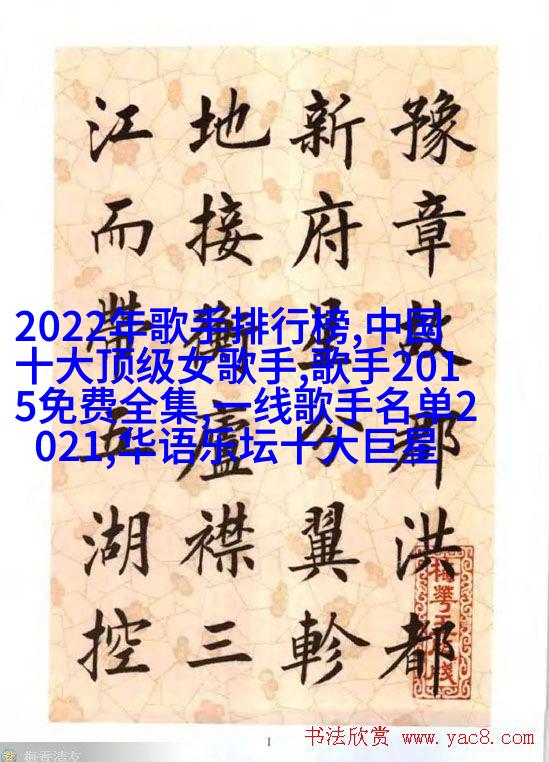 豫章故郡洪都
新府星分翼軫
地接衡廬襟三
江而帶五湖控
2022年歌手排行榜,中国
十大顶级女歌手,歌手201
5免费全集,一线歌手名单2
021,华语乐坛十大巨星
1
书法欣赏 www.yac8.com